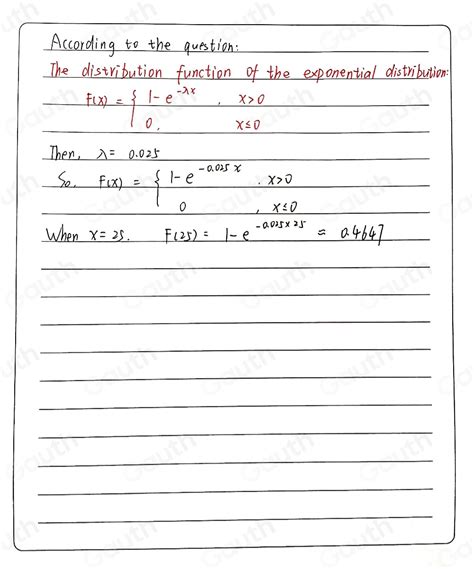 According to the question:
The distribution function of the exponential distribution:
F(x) = { 1 - e^{-λx} , x>0
0 , x≤0
Then, λ = 0.025
So, F(x) = { 1 - e^{-0.025x} , x>0
0 , x≤0
When x = 25. F(25) = 1 - e^{-0.025×25} ≈ 0.4647